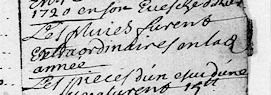 1720 en son
Les pluies furent
extraordinaires en lad
année
Les pieces d'un escu d'une
furent